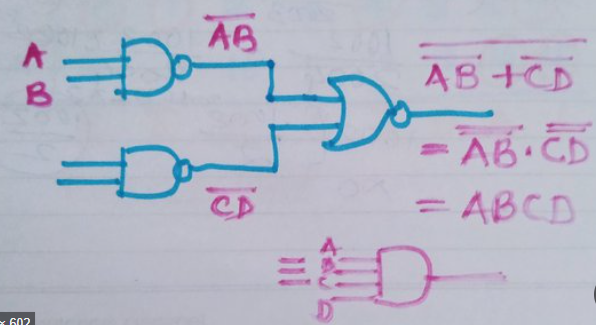 A
B
$\overline{AB}$
$\overline{CD}$
$\overline{\overline{AB} + \overline{CD}}$
$= \overline{\overline{AB}} \cdot \overline{\overline{CD}}$
= ABCD
≡ A
B
C
D
× 602